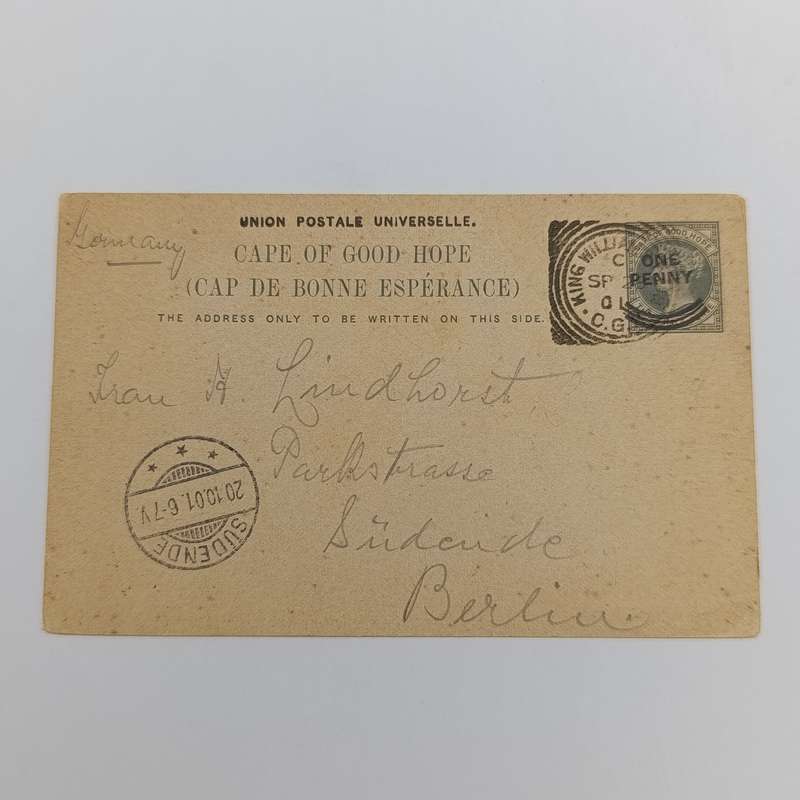 Germany
UNION POSTALE UNIVERSELLE.
CAPE OF GOOD HOPE
(CAP DE BONNE ESPÉRANCE)
THE ADDRESS ONLY TO BE WRITTEN ON THIS SIDE.
KING WILLIAM
C
SP
01
C.G.
OF GOOD HOPE
ONE
PENNY
Frau A. Lindhorst
Parkstrasse
Südende
Berlin
20.10.01.6-7V.
SÜDENDE